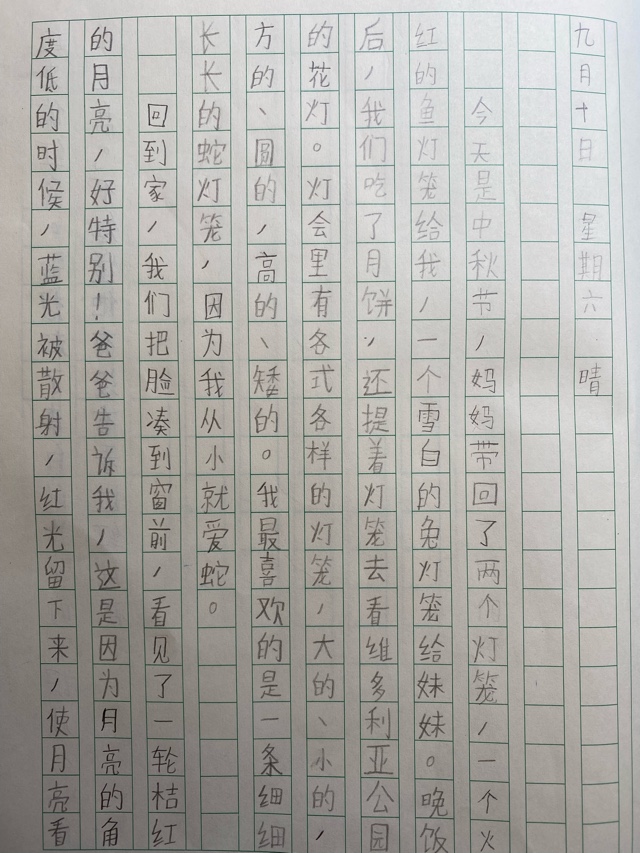 九月十日 星期六 晴
今天是中秋节，妈妈带回了两个灯笼，一个火
红的鱼灯笼给我，一个雪白的兔灯笼给妹妹。晚饭
后，我们吃了月饼，还提着灯笼去看维多利亚公园
的花灯。灯会里有各式各样的灯笼，大的、小的，
方的、圆的，高的、矮的。我最喜欢的是一条细细
长长的蛇灯笼，因为我从小就爱蛇。
回到家，我们把脸凑到窗前，看见了一轮桔红
的月亮，好特别！爸爸告诉我，这是因为月亮的角
度低的时候，蓝光被散射，红光留下来，使月亮看